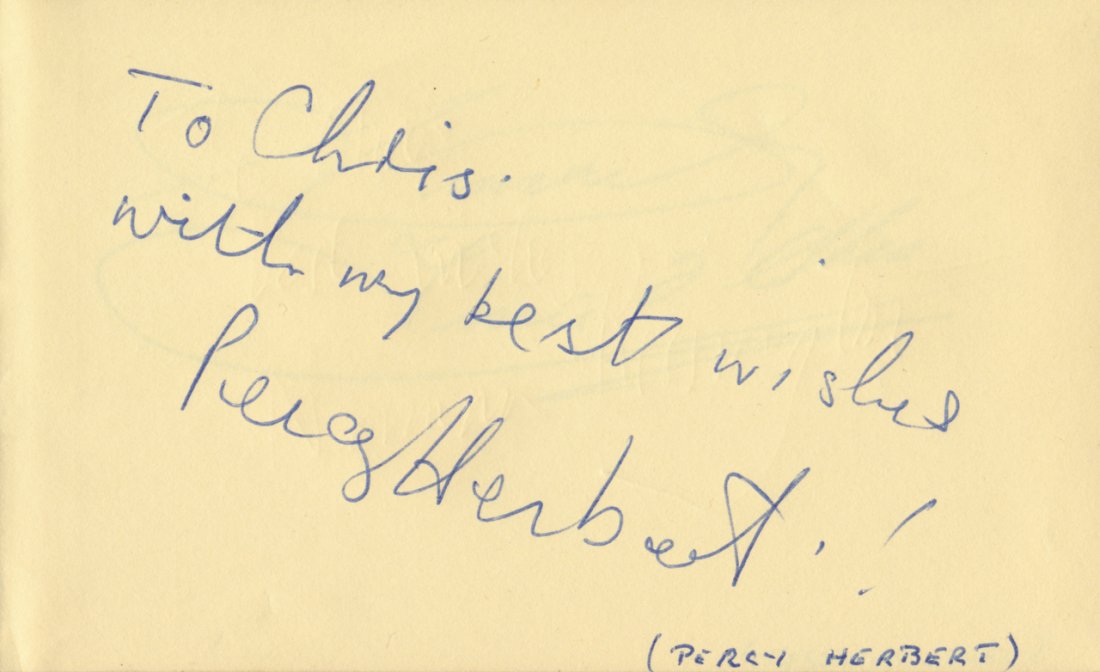 To Chris.
with my best wishes
Percy Herbert . !
(PERCY HERBERT)